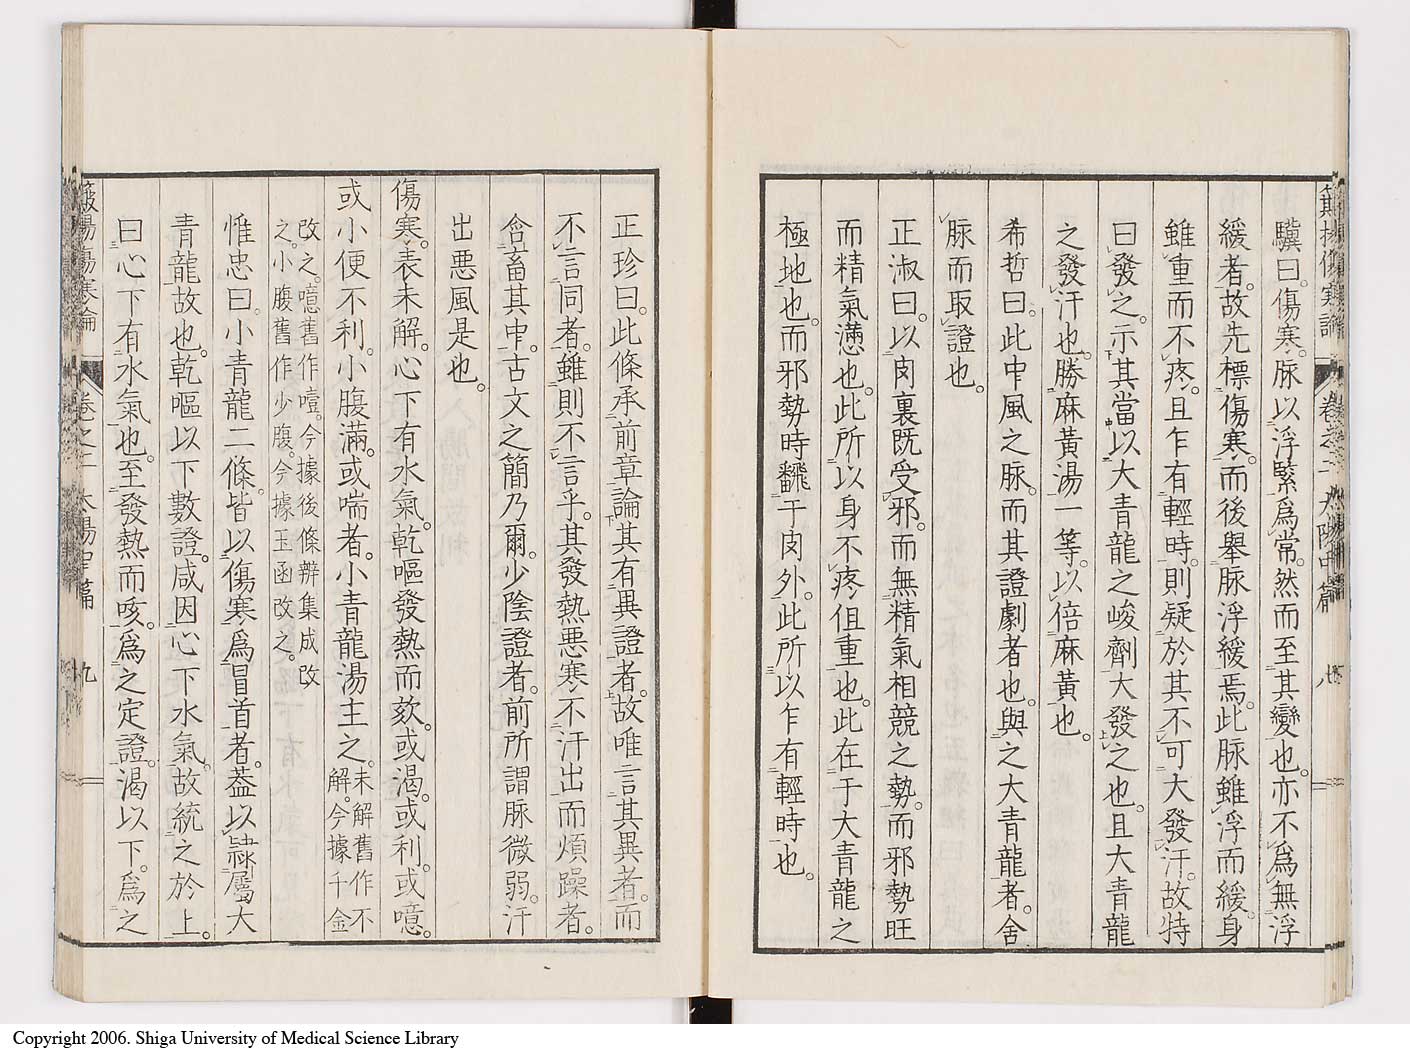 驥曰。傷寒。脉以浮緊爲常。然而至其變也。亦不爲無浮
緩者。故先標傷寒。而後舉脉浮緩焉。此脉雖浮而緩。身
雖重而不疼。且乍有輕時。則疑於其不可大發汗。故特
曰發之。示其當以大青龍之峻劑大發之也。且大青龍
之發汗也。勝麻黃湯一等。以倍麻黃也。
希哲曰。此中風之脉。而其證劇者也。與之大青龍者。舍
脉而取證也。
正淑曰。以肉裏既受邪。而無精氣相競之勢。而邪勢旺
而精氣懣也。此所以身不疼但重也。此在于大青龍之
極地也。而邪勢時飜于肉外。此所以乍有輕時也。
正珍曰。此條承前章論其有異證者。故唯言其異者。而
不言同者。雖則不言乎。其發熱惡寒不汗出而煩躁者。
含畜其中。古文之簡乃爾。少陰證者。前所謂脉微弱。汗
出惡風是也。
傷寒。表未解。心下有水氣。乾嘔發熱而欬。或渴。或利。或噫。
或小便不利。小腹滿。或喘者。小青龍湯主之。未解舊作不
解。今據千金
改之。噫舊作噎。今據後條辨集成改
之。小腹舊作少腹。今據玉函改之。
惟忠曰。小青龍二條。皆以傷寒爲冒首者。葢以隷屬大
青龍故也。乾嘔以下數證。咸因心下水氣。故統之於上。
曰心下有水氣也。至發熱而咳。爲之定證。渴以下。爲之
傷寒論
卷之二 太陽中篇 九